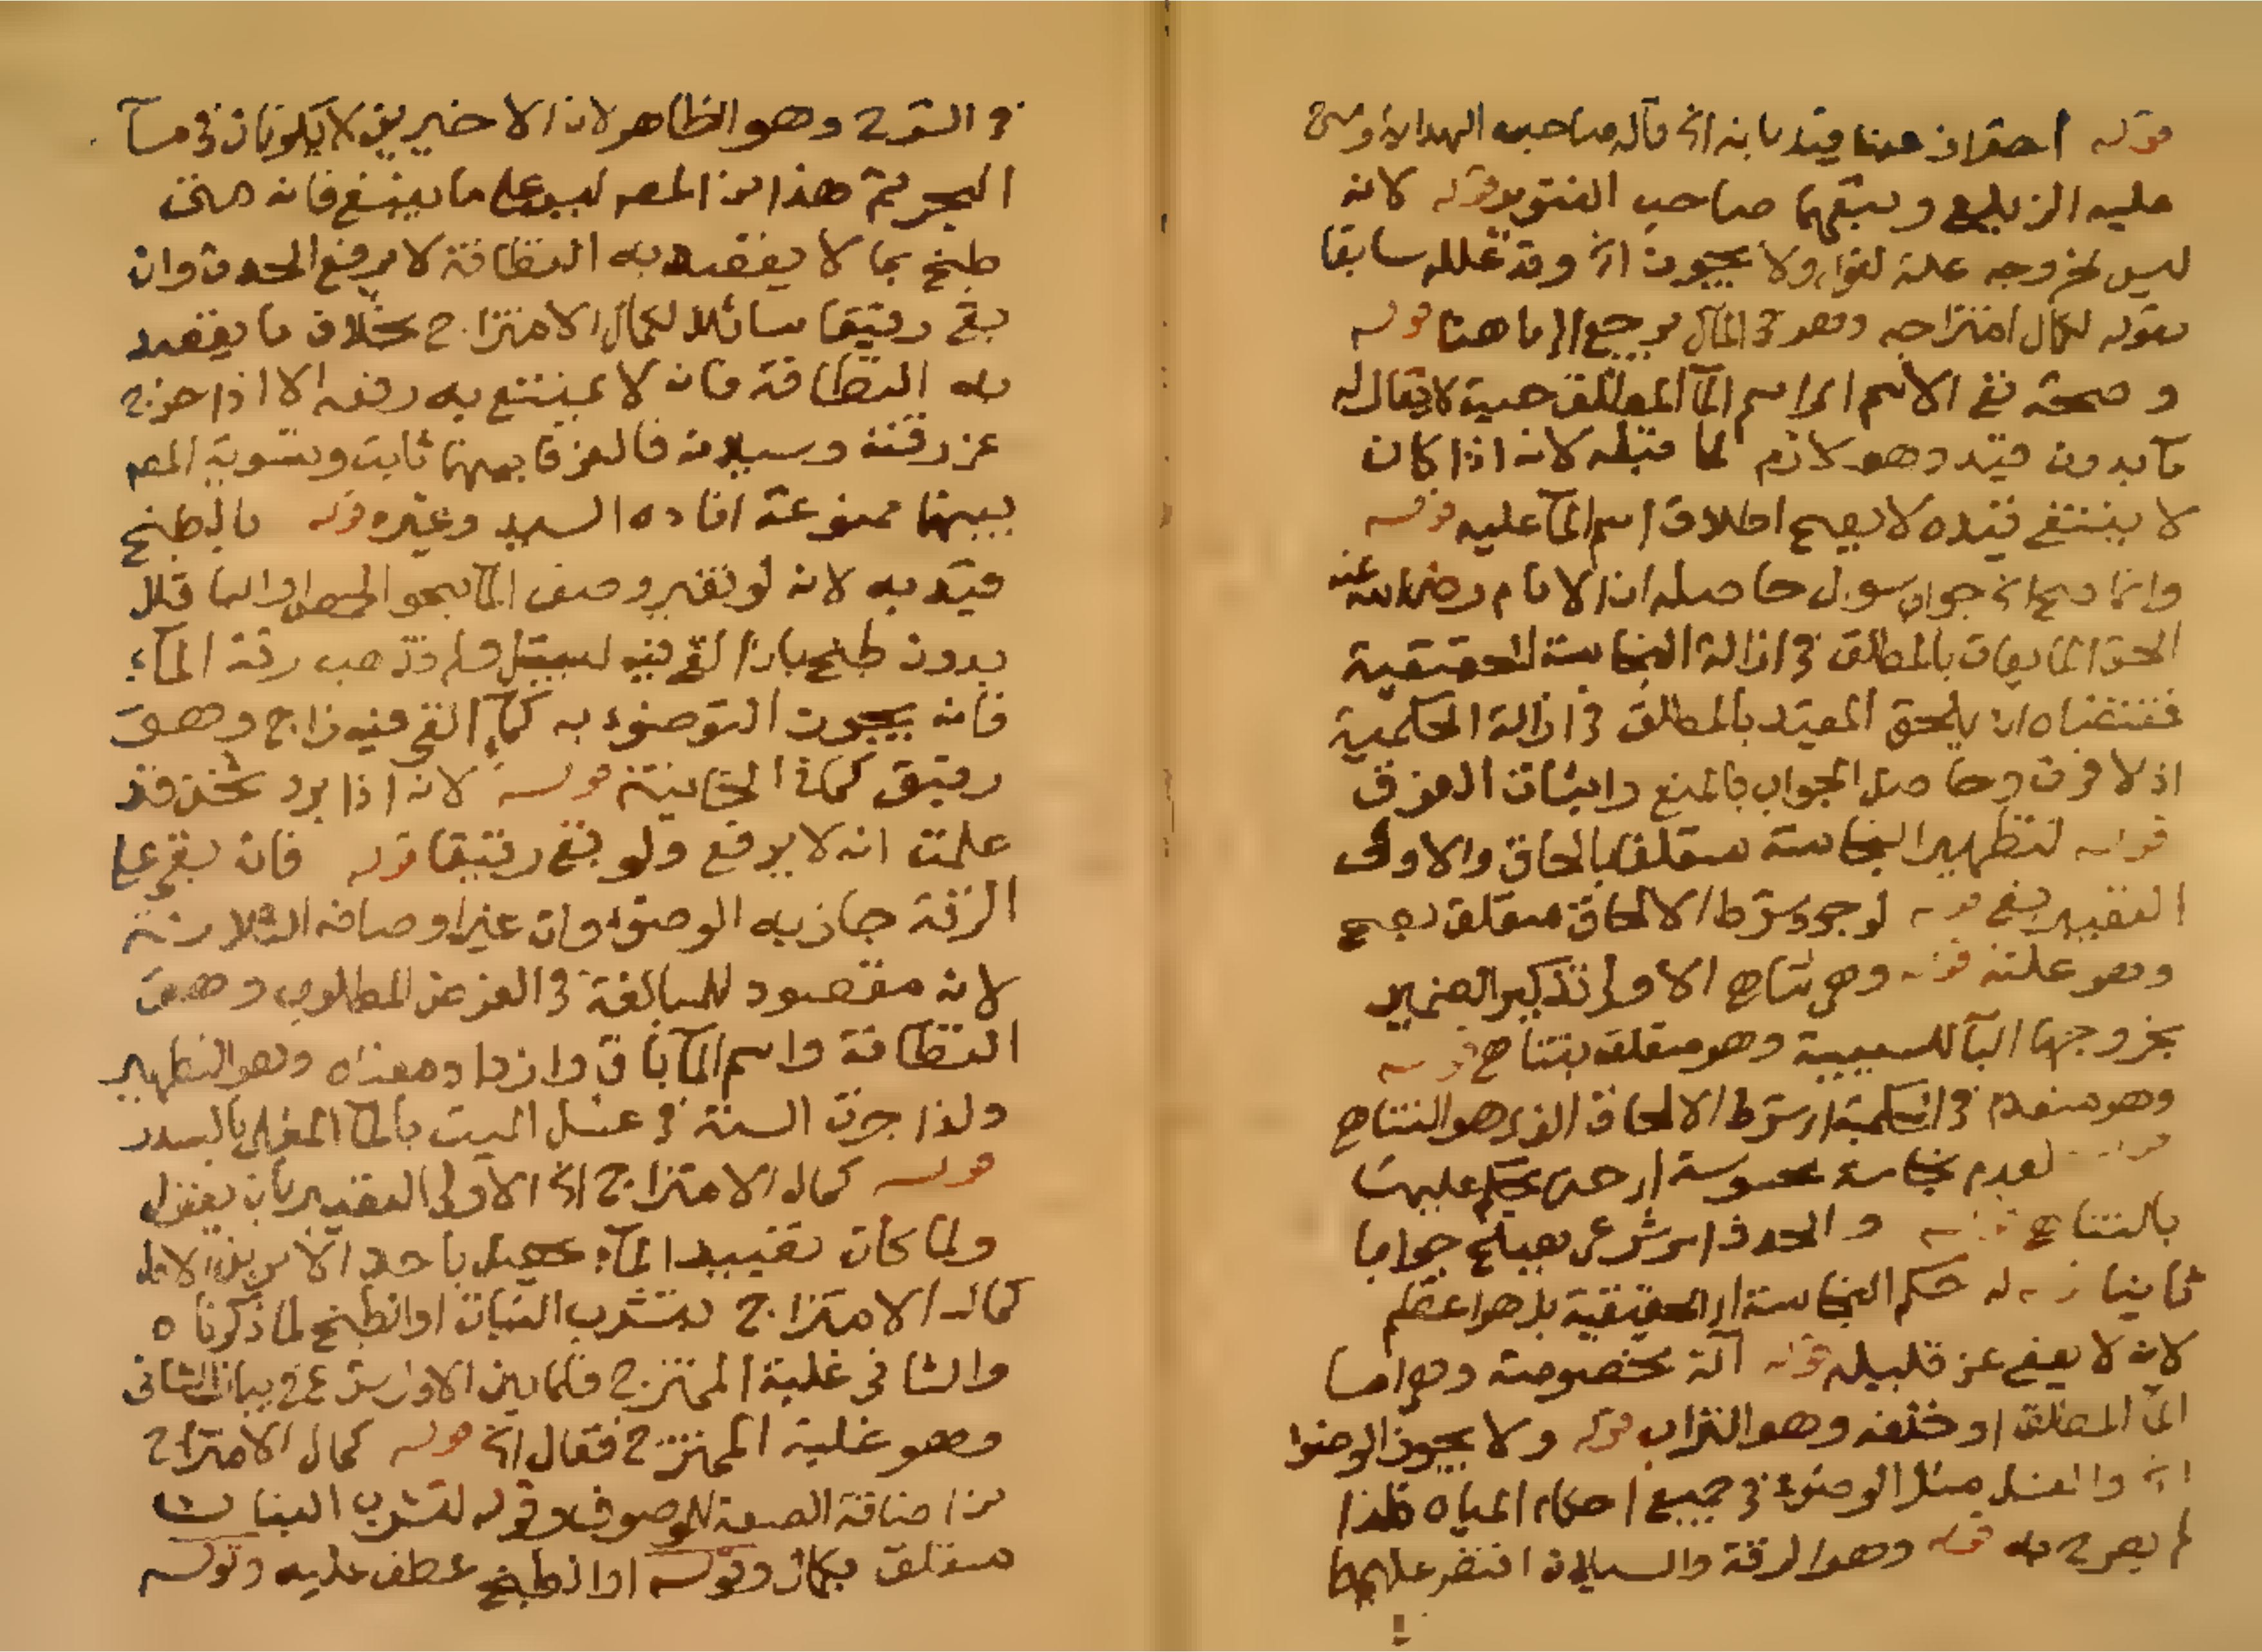 قوله احترازا عما قيد بانه الخ قاله صاحب الهداية ومشى
عليه الزيلعي وتبعهما صاحب التنوير قوله لانه
ليس لخروجه علة لقوله ولا يجوز الخ وقد علله سابقا
بقوله لكمال امتزاجه وهو في المآل يرجع الى ما هنا قوله
وصحة نفي الاسم اي اسم المآ المطلق حيث لا يقال له
مآ بدون قيد وهو لازم لما قبله لانه اذا كان
لا ينتفي قيده لا يصح اطلاق اسم المآ عليه قوله
وانما صح الخ جواب سوال حاصله ان الامام رضى الله عنه
الحق المايعات بالمطلق في ازالة النجاسة الحقيقية
فمقتضاه ان يلحق المقيد بالمطلق في ازالة الحكمية
اذ لا فرق وحاصل الجواب بالمنع واثبات الفرق
قوله لتطهير النجاسة متعلق بالحاق والاولى
التعبير بفي قوله لوجود شرط الالحاق متعلق بصح
وهو علته قوله وهي تناهي الاولى تذكير الضمير
بخروجها البآ للسببية وهو متعلق بتناهي قوله
وهو منعدم في الحكمية اي شرط الالحاق الذي هو التناهي
قوله لعدم نجاسة محسوسة اي حتى يحكم عليها
بالتناهي قوله والحدث امر شرعي يصلح جوابا
ثانيا قوله حكم النجاسة اي الحقيقية بل هو اعظم
لانه لا يعفى عن قليله قوله آلة مخصوصة وهي اما
المآ المطلق او خلفه وهو التراب قوله ولا يجوز الوضوا
الخ والغسل مثل الوضوء في جميع احكام المياه فلذا
لم يصرح به قوله وهو الرقة والسيلان اقتصر عليهما
في الشرح وهو الظاهر لان الاخيرين لا يكونان في مآ
البحر ثم هذا من المصه ليس على ما ينبغي فانه متى
طبخ بما لا يقصد به النظافة لا يرفع الحدث وان
بقي رقيقا سائلا لكمال الامتزاج بخلاف ما يقصد
به النظافة فانه لا يمتنع به رفعه الا اذا خرج
عن رقته وسيلانه فالفرق بينهما ثابت وتسوية المصه
بينهما ممنوعة افاده السيد وغيره قوله بالطبخ
قيد به لانه لو تغير وصف المآ بنحو الحمص او الباقلا
بدون طبخ بان القي فيه ليبتل ولم تذهب رقة المآء
فانه يجوز التوضوء به كمآء القي فيه زاج وهو
رقيق كما في الخانية قوله لانه اذا برد ثخن قد
علمت انه لا يرفع ولو بقي رقيقا قوله فانه بقي على
الرقة جاز به الوضوء وان غير اوصافه الثلاثة
لانه مقصود للمبالغة في الغرض المطلوب وهو
النظافة واسم المآ باق وازداد معناه وهو التطهير
ولذا جرت السنة في غسل الميت بالمآ المغلي بالسدر
قوله كمال الامتزاج الخ الاولى التعبير بان يقول
ولما كان تقييد المآء يحصل باحد الامرين الاول
كمال الامتزاج بتشرب النبات او الطبخ لما ذكرناه
والثاني غلبة الممتزج فلما بين الاول شرع في بيان الثاني
وهو غلبة الممتزج فقال الخ قوله كمال الامتزاج
من اضافة الصفة للموصوف وقوله لتشرب النبات
متعلق بكمال وقوله او الطبخ عطف عليه وقوله